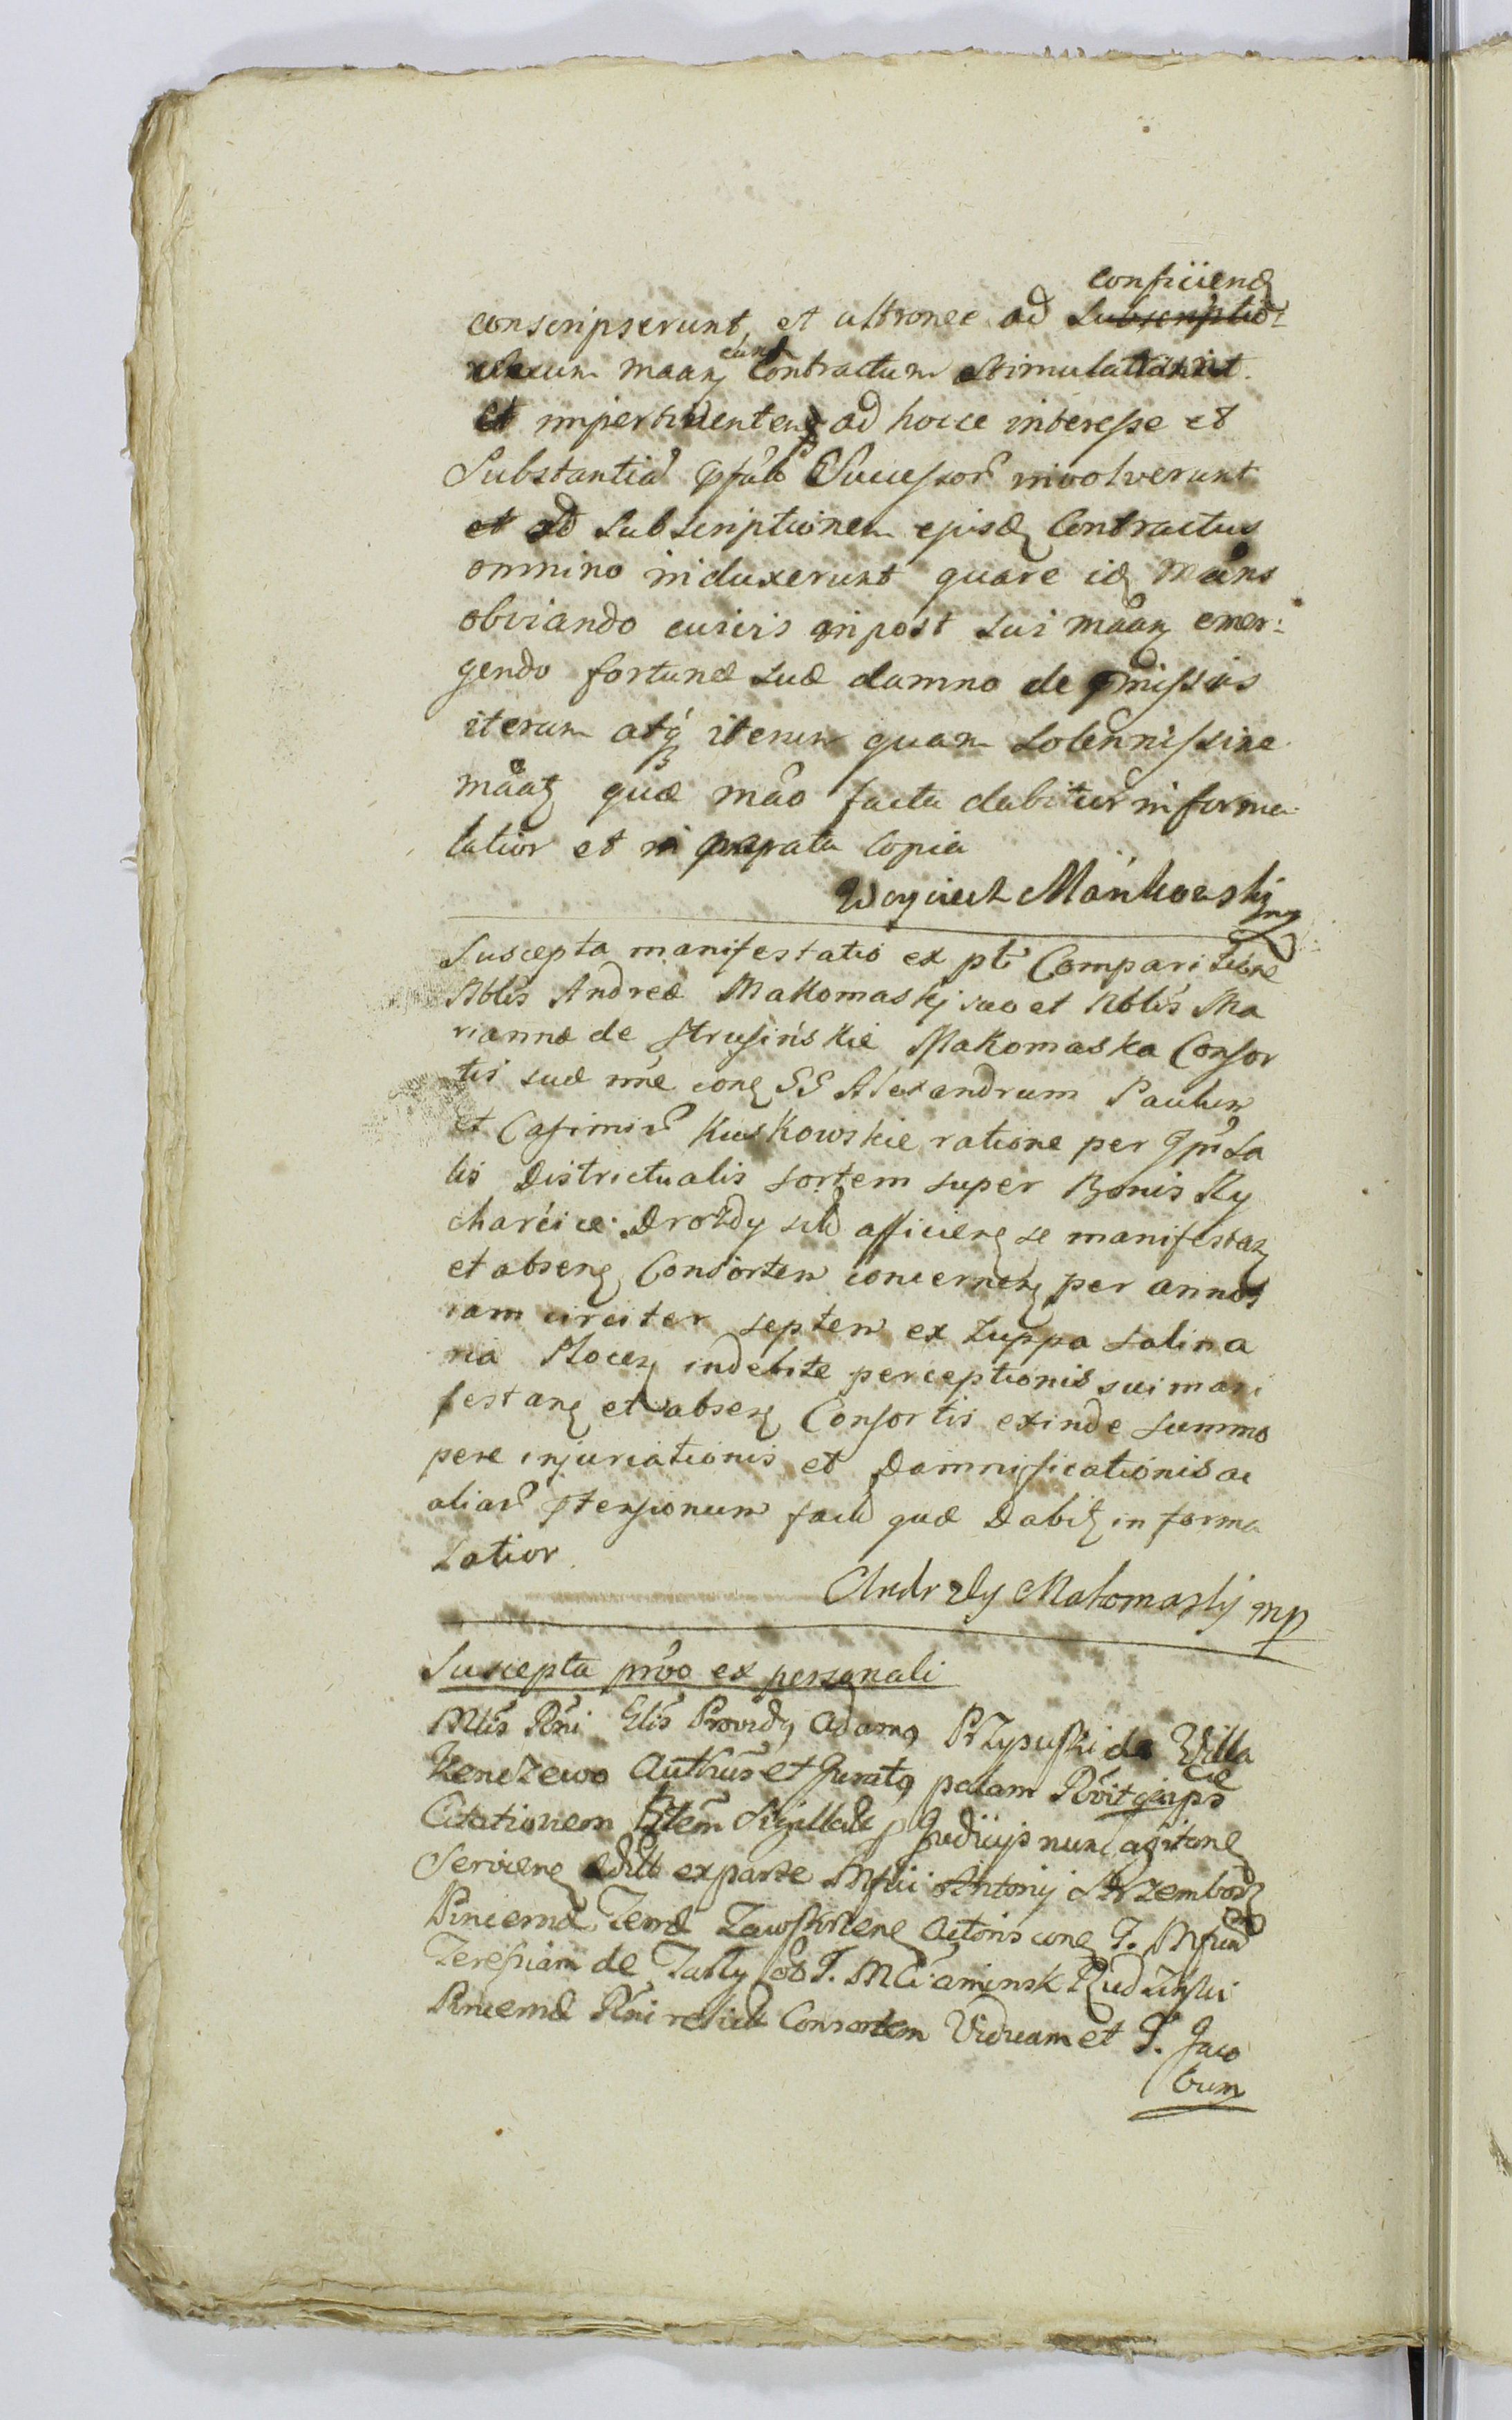 conficiend
conscripserunt, et ultronee ad subscriptio
maan eund Contractum stimulaverunt
et impertinenter ad hocce interesse et
Substantia Successor involverunt
et ad Subscriptionem ejusd Contractus
omnino induxerunt quare id Mans
obviando cuivis inpost sui maan emer:
gendo fortunæ suæ damno de pmissis
iterum atq iterum quam solennissime
maat quæ mao facta dabitur in forma
latior et in parata Copia
Woyciech Mańkowski mp
Suscepta manifestatio ex pti Comparitione
Nblis Andreæ Makomaskj suo et Nblis Ma
riannæ de Strusińskie Makomaska Consor
tis suæ nne con SS Alexandrum Paulum
et Casimir Kuskowskie ratione per
lis Districtualis sortem super Bonis Ry
charcice Drożdy afficien se manifestan
et absen Consortem concernen per annos
iam circiter septem ex Zuppa Salina
ria Plocen indebite perceptionis sui mani
festan et absen Consortis exinde summo
pere injuriationis et Damnificationis ac
aliar ptensionum fact quæ Dabit in forma
latior
Andrzey Makomaskj mp
Suscepta prõo ex personali
Mtis Rni Glis Provid Adam Przypuski de Villa
Kendzewo Authus et Jurat palam
Citationem Sigillat p Judicijs nunc agitan
Servien edit ex parte Mfici Antonij Strzembosz
Pincernæ Terræ Zawskrzen Actoris con G. Mficam
Teresiam de Tally M C. aminsk Rudzinski
Pincernæ Rni relict Consortem Viduam et G. Jaco
bum